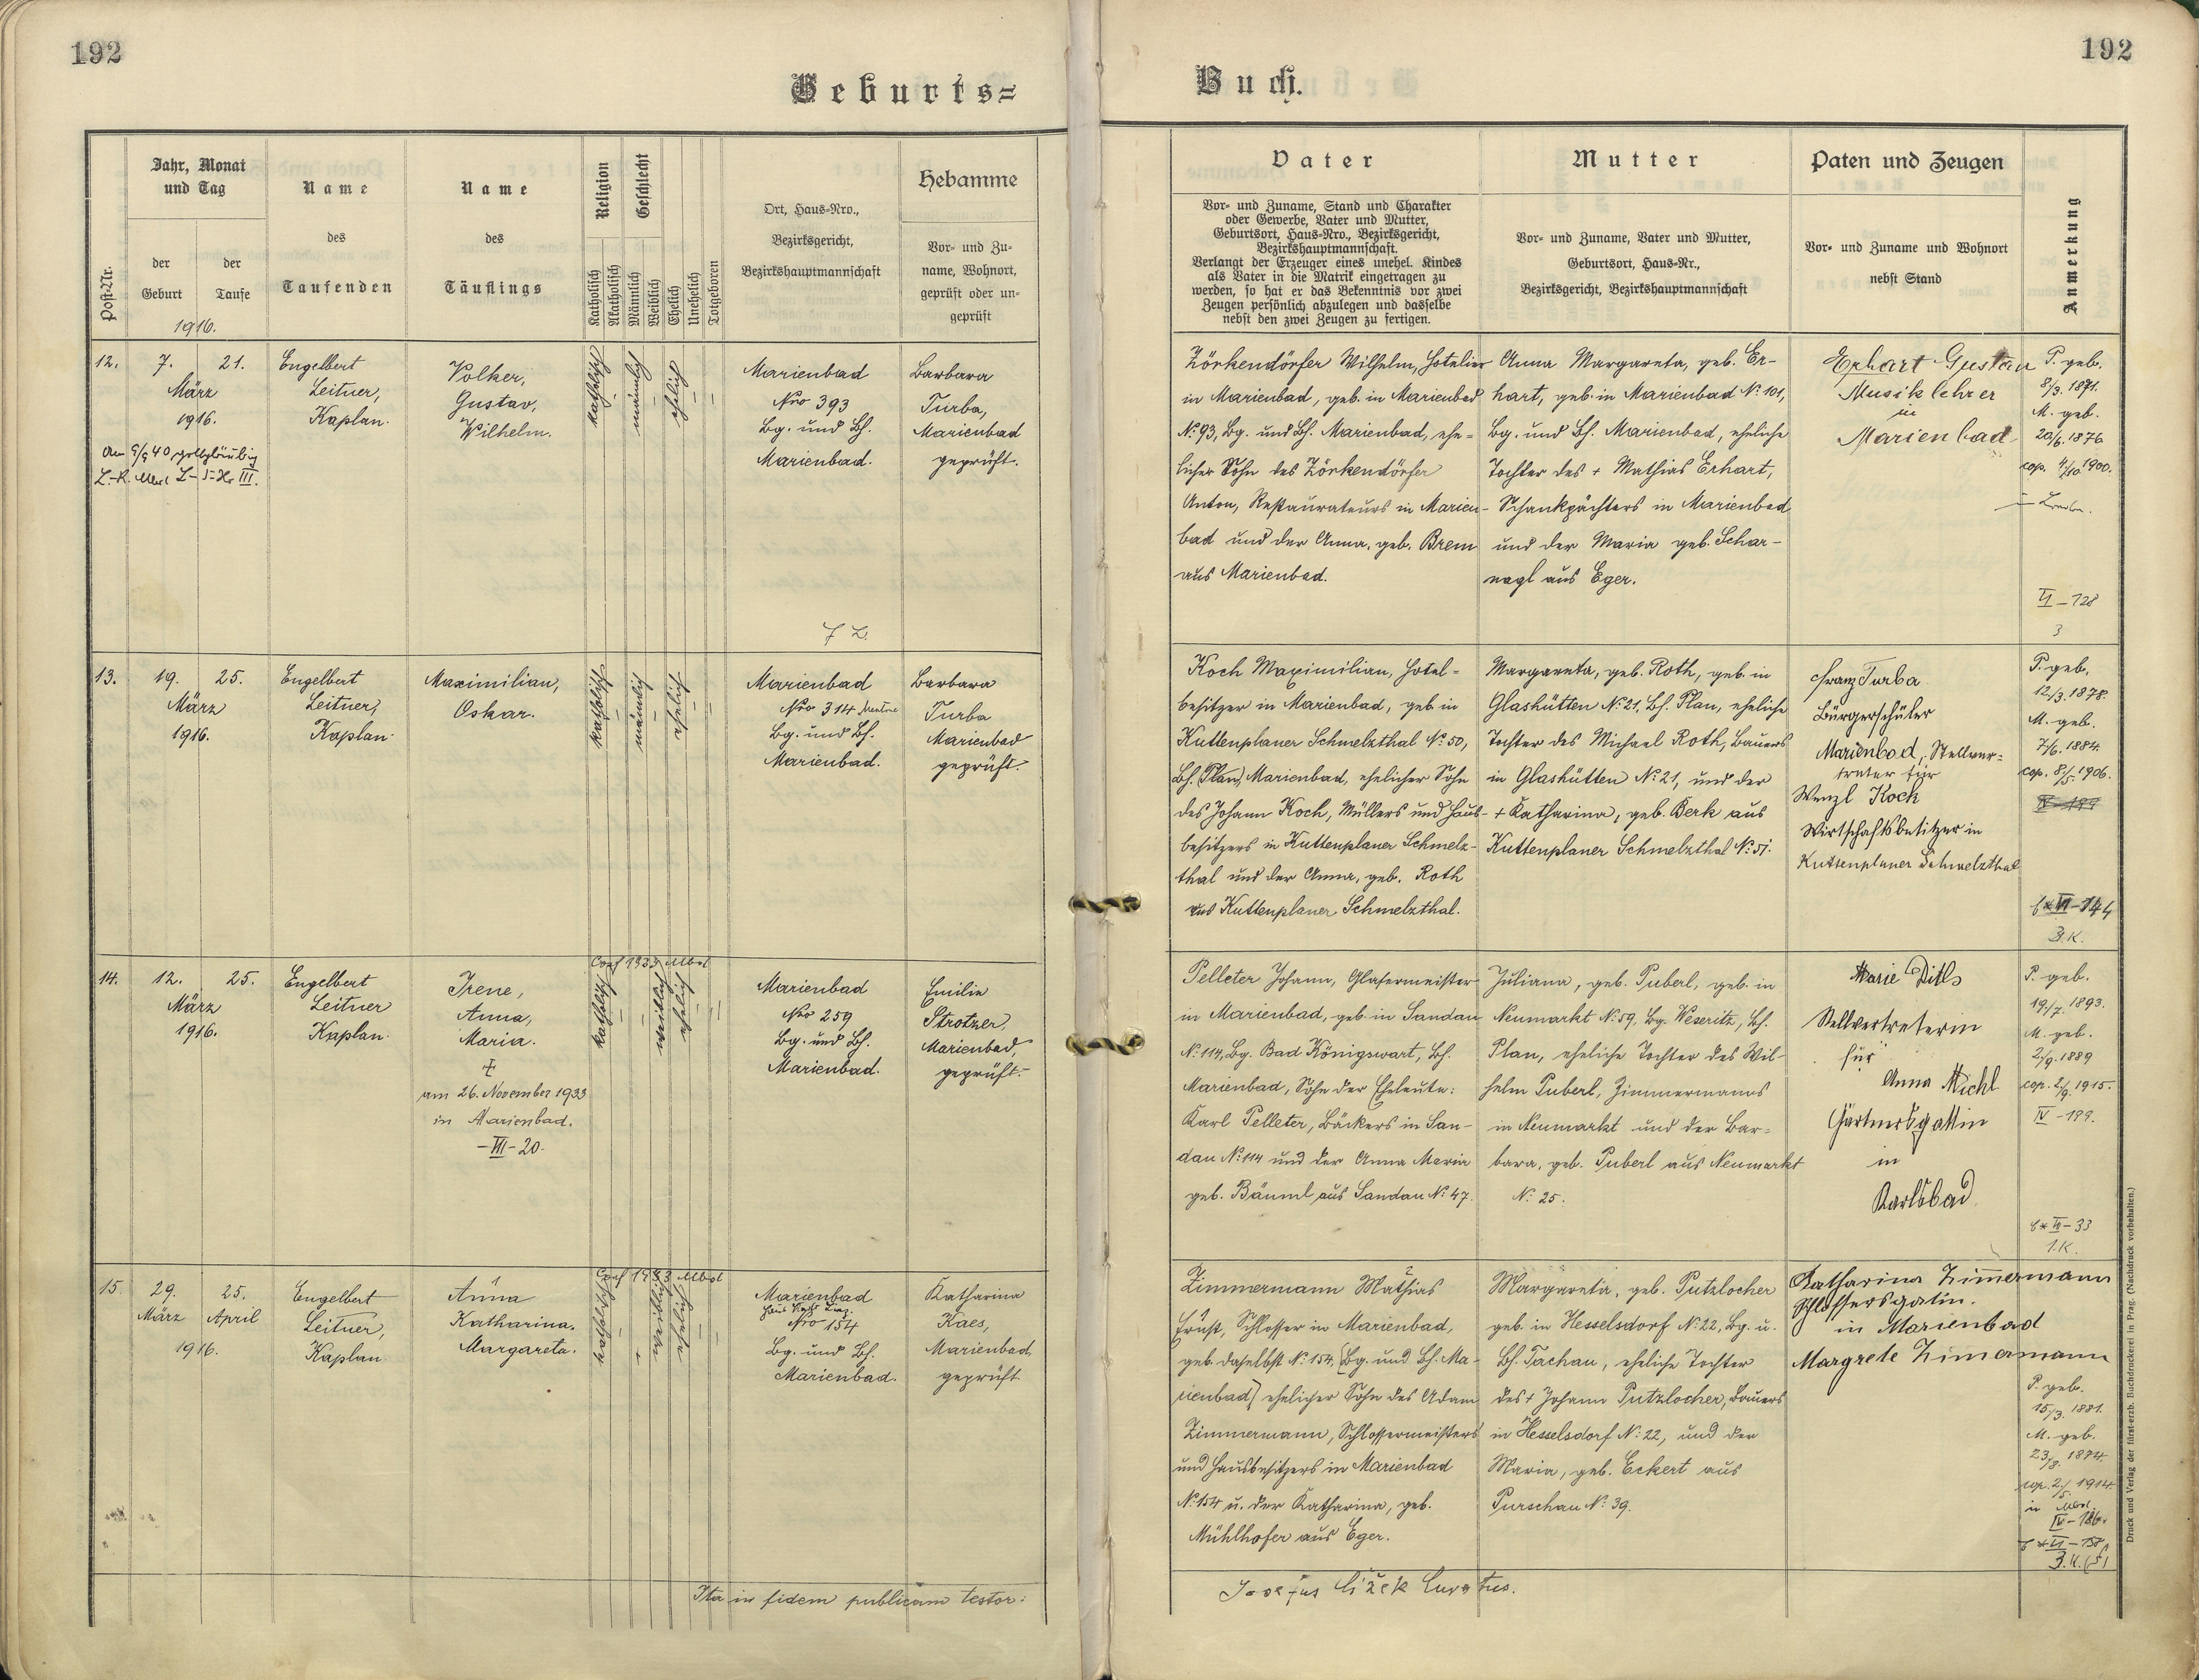 192
Geburts=
Post-Nr.
Jahr, Monat
und Tag
der
Geburt
der
Taufe
1916.
Name
des
Taufenden
Name
des
Täuflings
Religion
Geschlecht
Katholisch
Akatholisch
Männlich
Weiblich
Ehelich
Unehelich
Totgeboren
Ort, Haus-Nro.,
Bezirksgericht,
Bezirkshauptmannschaft
Hebamme
Vor- und Zu-
name, Wohnort,
geprüft oder un-
geprüft
12.
7. 21.
März
1916.
Engelbert
Leitner,
Kaplan.
Volker,
Gustav,
Wilhelm.
katholisch
männlich
ehelich
Marienbad
Nro 393
Bg. und Bh.
Marienbad.
Barbara
Turba,
Marienbad
geprüft.
13.
19. 25.
März
1916.
Engelbert
Leitner,
Kaplan.
Maximilian,
Oskar.
katholisch
männlich
ehelich
Marienbad
Nro 314
Bg. und Bh.
Marienbad.
Barbara
Turba
Marienbad
geprüft.
14.
12. 25.
März
1916.
Engelbert
Leitner
Kaplan.
Irene,
Anna,
Maria.
am 26. November 1933
in Marienbad.
-VII-20-
Conf 1933 Mbd
katholisch
weiblich
ehelich
Marienbad
Nro 259
Bg. und Bh.
Marienbad.
Emilie
Strotzer,
Marienbad,
geprüft.
15
29. 25.
März April
1916.
Engelbert
Leitner,
Kaplan
Anna
Katharina.
Margareta.
katholisch
weiblich
ehelich
Marienbad
Nro 154
Bg. und Bh.
Marienbad.
Katharina
Kaes,
Marienbad,
geprüft
Ita in fidem publicam testor:
192
Buch.
Vater
Vor- und Zuname, Stand und Charakter
oder Gewerbe, Vater und Mutter,
Geburtsort, Haus-Nro., Bezirksgericht,
Bezirkshauptmannschaft.
Verlangt der Erzeuger eines unehel. Kindes
als Vater in die Matrik eingetragen zu
werden, so hat er das Bekenntnis vor zwei
Zeugen persönlich abzulegen und dasselbe
nebst den zwei Zeugen zu fertigen.
Mutter
Vor- und Zuname, Vater und Mutter,
Geburtsort, Haus-Nr.,
Bezirksgericht, Bezirkshauptmannschaft
Paten und Zeugen
Vor- und Zuname und Wohnort
nebst Stand
Anmerkung
Zörkendörfer Wilhelm, Hotelier
in Marienbad, geb. in Marienbad
No. 93, Bg. und Bh. Marienbad, ehe-
licher Sohn des Zörkendörfer
Anton, Restaurateurs in Marien-
bad und der Anna, geb. Brem
aus Marienbad.
Anna Margareta, geb. Er-
hart, geb. in Marienbad No. 101,
Bg. und Bh. Marienbad, eheliche
Tochter des + Mathias Erhart,
Schankpächters in Marienbad
und der Maria geb. Schar-
nagl aus Eger.
Erhart Gustav
Musiklehrer
in
Marienbad
P. geb.
8/3. 1871.
M. geb.
20/6. 1876
cop. 4/10. 1900.
VI - 128
3
Koch Maximilian, Hotel-
besitzer in Marienbad, geb. in
Kuttenplaner Schmelzthal No. 50,
Bh. (Plan), Marienbad, ehelicher Sohn
des Johann Koch, Müllers und Haus-
besitzers in Kuttenplaner Schmelz-
thal und der Anna, geb. Roth
aus Kuttenplaner Schmelzthal.
Margareta, geb. Roth, geb. in
Glashütten No. 21, Bh. Plan, eheliche
Tochter des Michael Roth, Bauers
in Glashütten No. 21, und der
+ Katharina, geb. Berk aus
Kuttenplaner Schmelzthal No. 51.
Franz Turba
Bürgerschüler
Marienbad, Stellver=
treter für
Wenzl Koch
Wirtschaftsbesitzer in
Kuttenplaner Schmelzthal
P. geb.
12/3. 1878.
M. geb.
7/6. 1884.
cop. 8/5. 1906.
3.K.
Pelleter Johann, Glasermeister
in Marienbad, geb. in Sandau
No. 114, Bg. Bad Königswart, Bh.
Marienbad, Sohn der Eheleute:
Karl Pelleter, Bäckers in San-
dau No. 114 und der Anna Maria
geb. Bäuml aus Sandau No. 47.
Juliana, geb. Puberl, geb. in
Neumarkt No. 59, Bg. Weseritz, Bh.
Plan, eheliche Tochter des Wil-
helm Puberl, Zimmermanns
in Neumarkt und der Bar-
bara, geb. Puberl aus Neumarkt
No. 25.
Marie Ditls
Stellvertreterin
für
Anna Michl
Gärtnersgattin
in
Karlsbad
P. geb.
19/7. 1893.
M. geb.
2/9. 1889
cop. 2/9. 1915.
IV - 189.
1.K.
Zimmermann Mathias
Ernst, Schlosser in Marienbad,
geb. daselbst No. 154, (Bg. und Bh. Ma-
rienbad) ehelicher Sohn des Adam
Zimmermann, Schlossermeisters
und Hausbesitzers in Marienbad
No. 154 u. der Katharina, geb.
Mühlhofer aus Eger.
Margareta, geb. Putzlocher
geb. in Hesselsdorf No. 22, Bg. u.
Bh. Tachau, eheliche Tochter
des + Johann Putzlocher, Bauers
in Hesselsdorf No. 22, und der
Maria, geb. Eckert aus
Purschau No. 39.
Katharina Zimmermann
Schlossersgatin.
in Marienbad
Margrete Zimermann
P. geb.
15/3. 1881.
M. geb.
23/8. 1874.
cop. 2/5. 1914
in Mbd.
IV - 186.
Josefus Čížek Curatus.
Druck und Verlag der fürst-erzb. Buchdruckerei in Prag. (Nachdruck vorbehalten.)